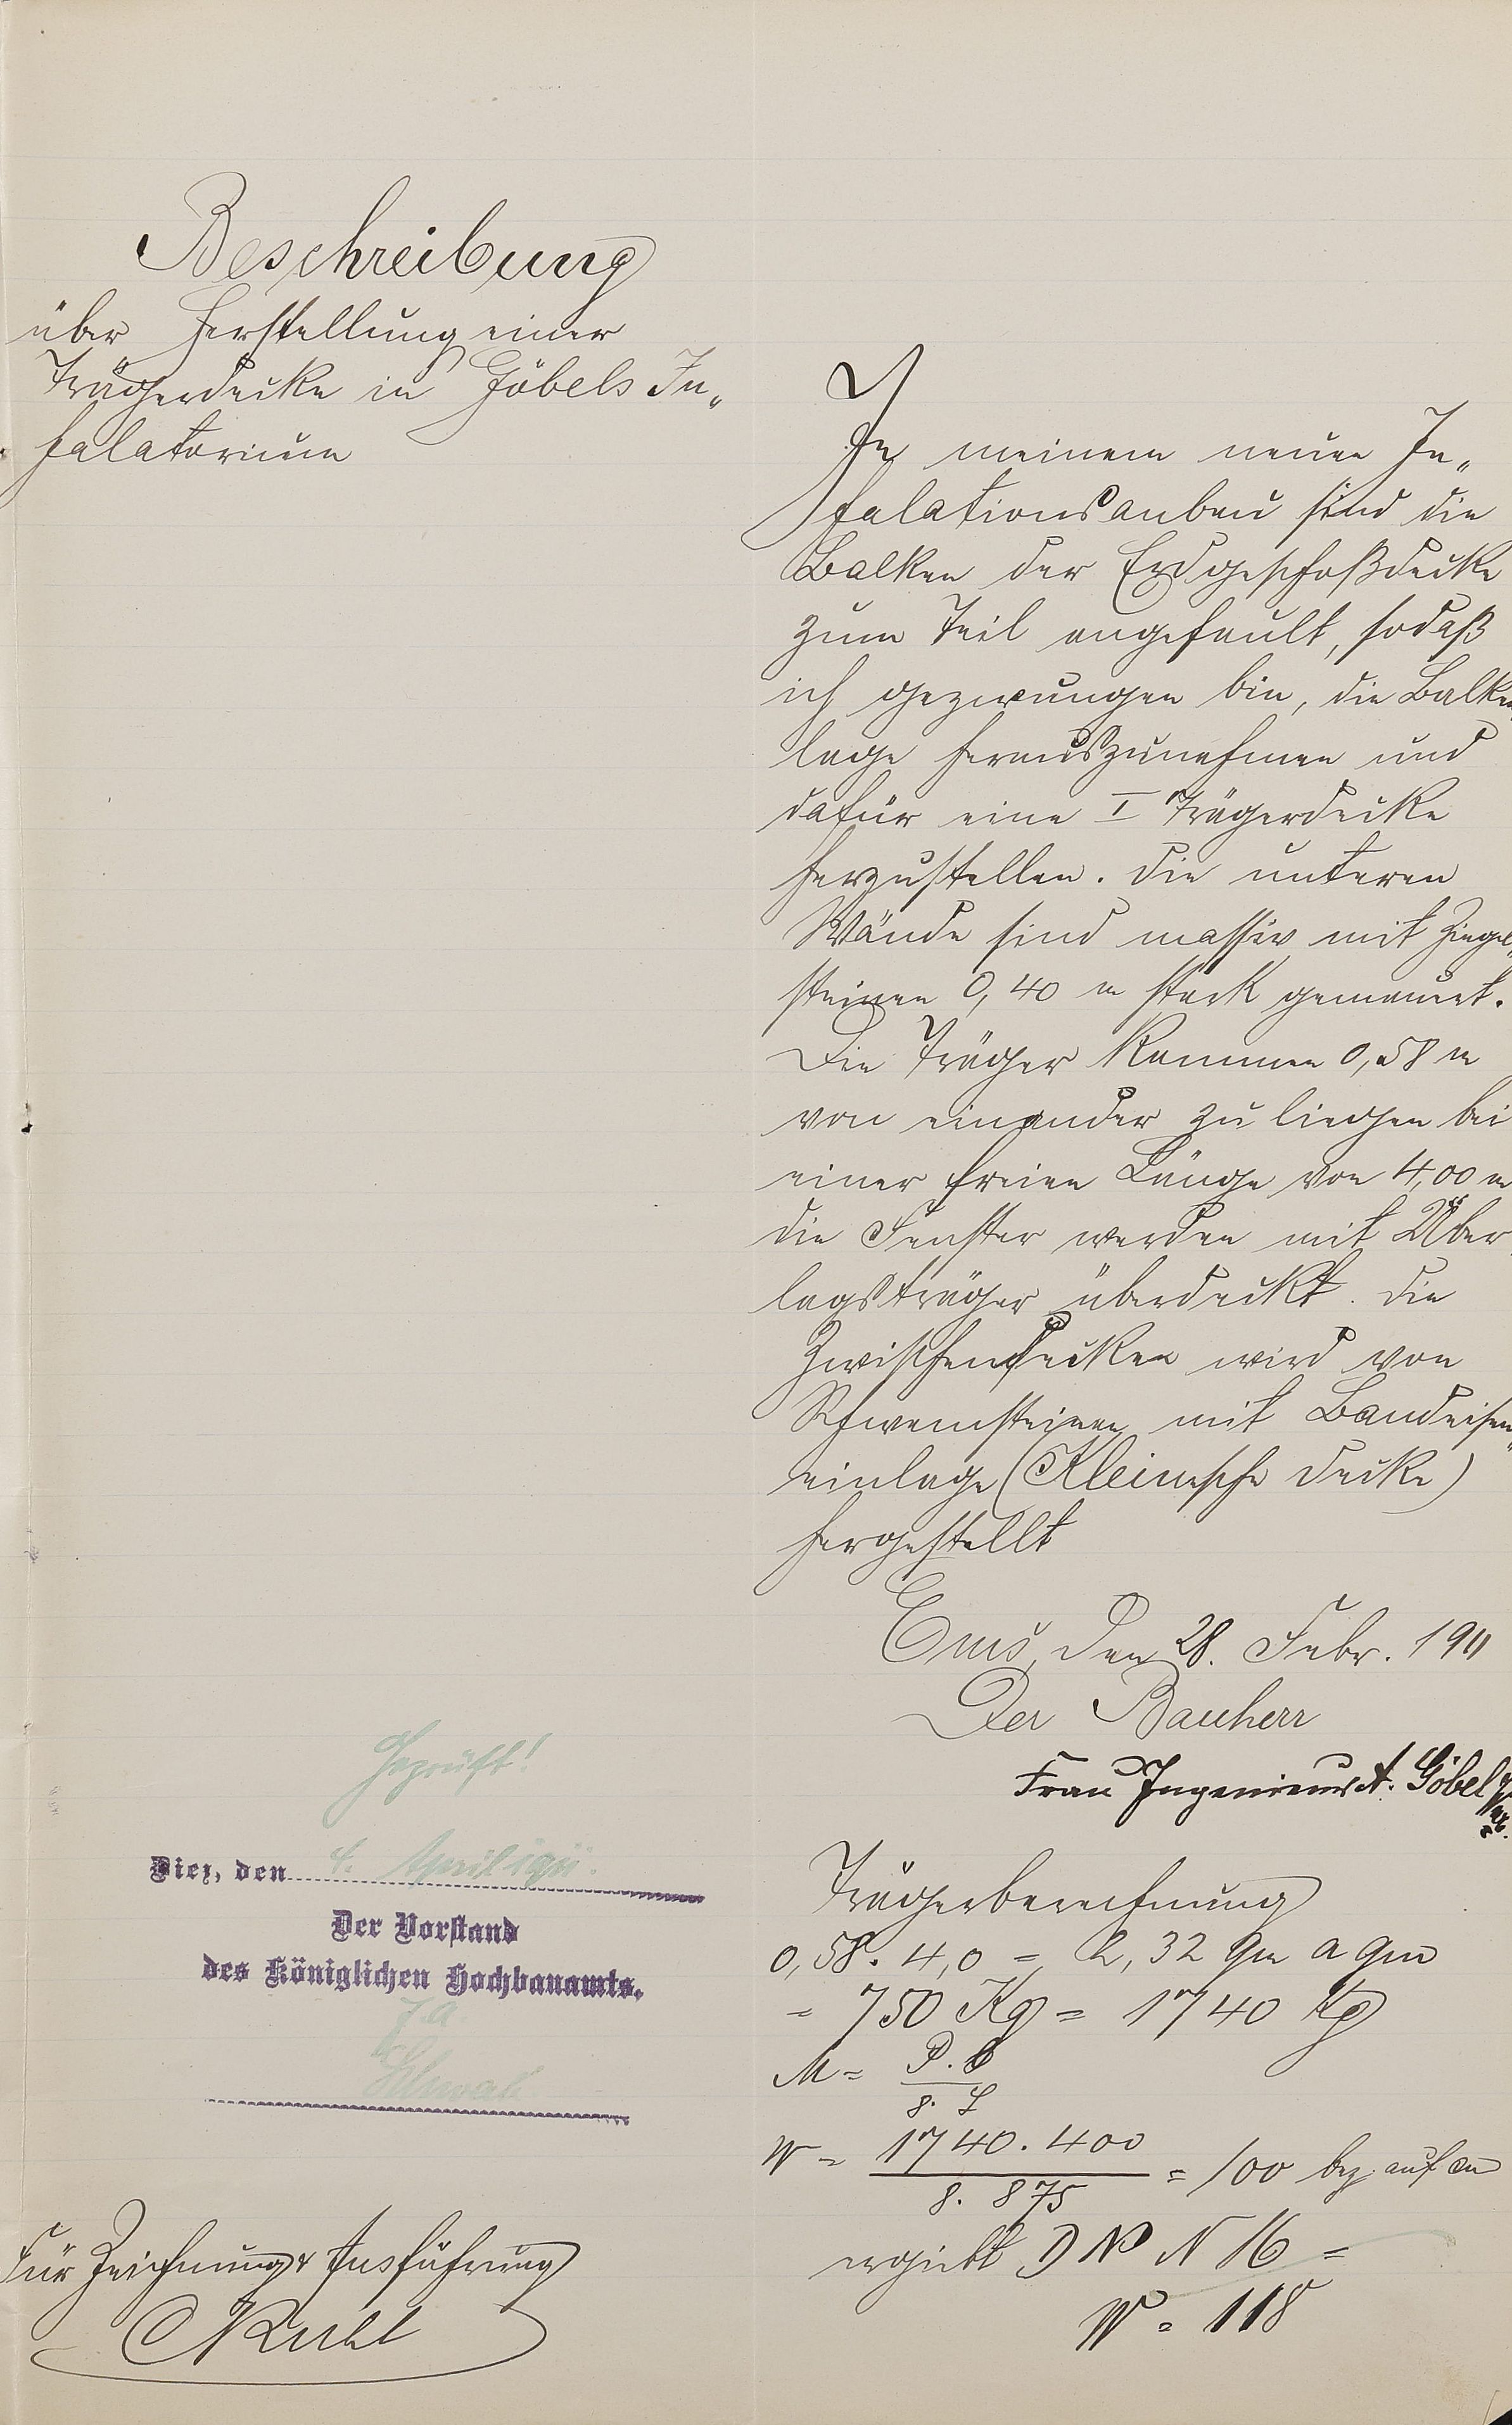 Beschreibung
über Herstellung einer
Trägerdecke in Göbels In„
halatorium
In meinem neuen In„
halationsanbau sind die
Balken der Erdgeschoßdecke
zum Teil angefault, sodaß
ich gezwungen bin, die Balken
lage herauszunehmen und
dafür eine I Trägerdecke
herzustellen. Die unteren
Wände sind massiv mit Ziegel„
steinen 0,40 m stark gemauert.
Die Träger kommen 0,58 m
von einander zu liegen bei
einer freien Länge von 4,00 m
die Fenster werden mit Über
lagsträger überdeckt. Die
Zwischendecken wird von
Schwemsteinen mit Bandeisen„
einlage (Kleinesche Decke)
hergestellt
Ems, den 28. Febr. 1911
Der Bauherr
Frau Ingenieur A. Göbel
Trägerberechnung
0,58 . 4,0 = 2,32 qm a qm
= 750 Kg = 1740 Kg
M = P . l
8 . S
W = 1740 . 400
8 . 875
= 100 bez. auf cm
ergiebt D N P N 16 =
W = 118
Geprüft!
Diez, den 4. April 1911.
Der Vorstand
des Königlichen Hochbauamts.
J. A.
Für Zeichnung & Ausführung